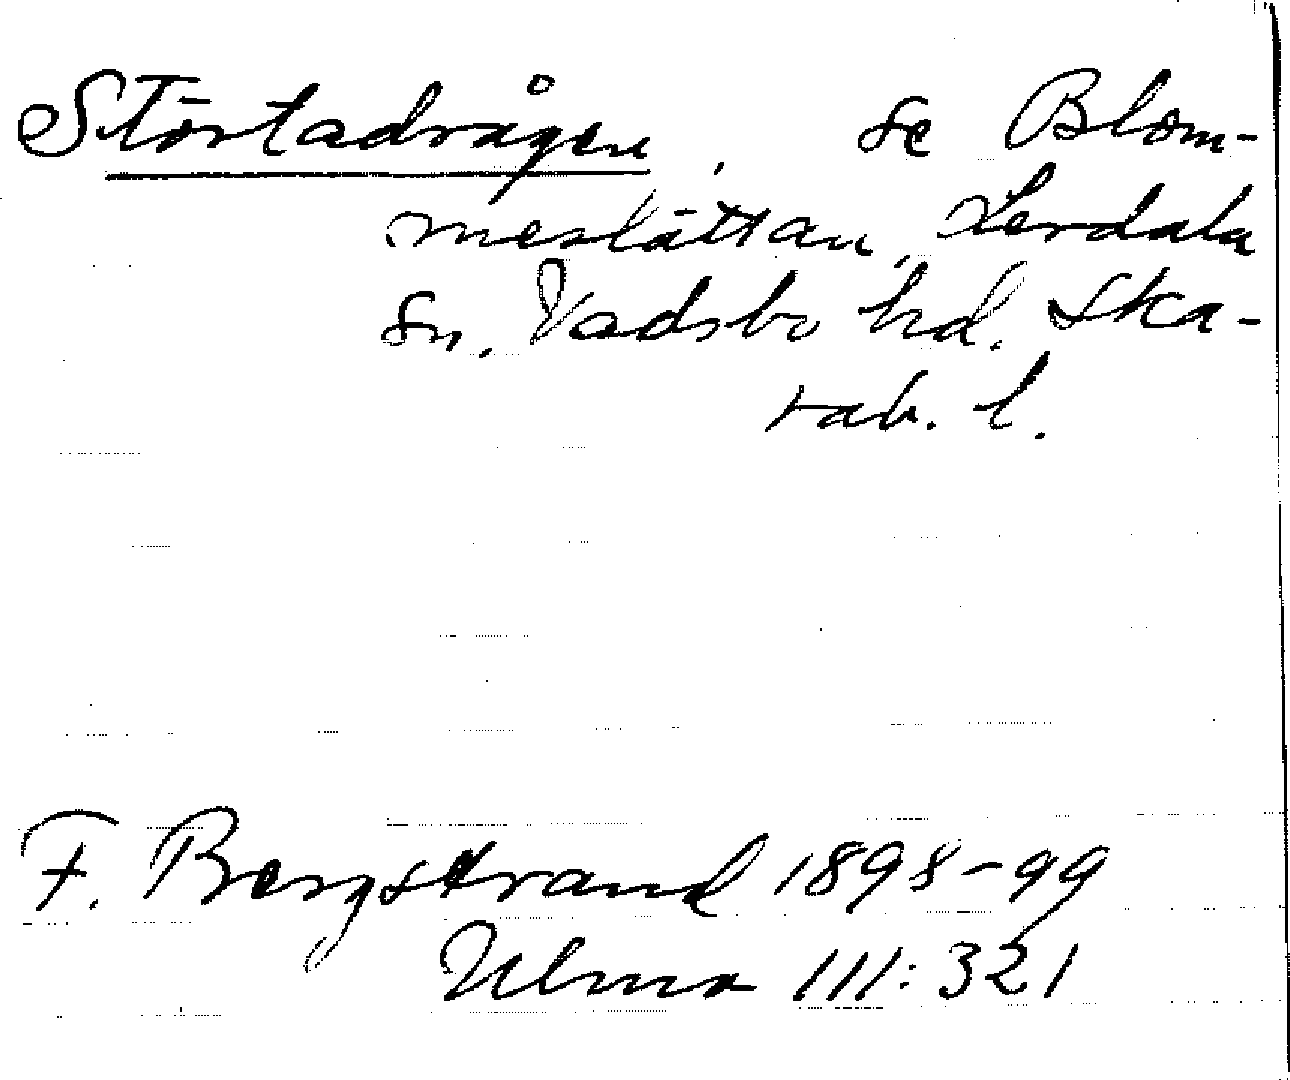 Störtadrågen, se Blom-
meslåttan, Lerdala
sn. Vadsbo hd. Ska-
rab. l.
F. Bergstrand 1898-99
Ulma 111:321